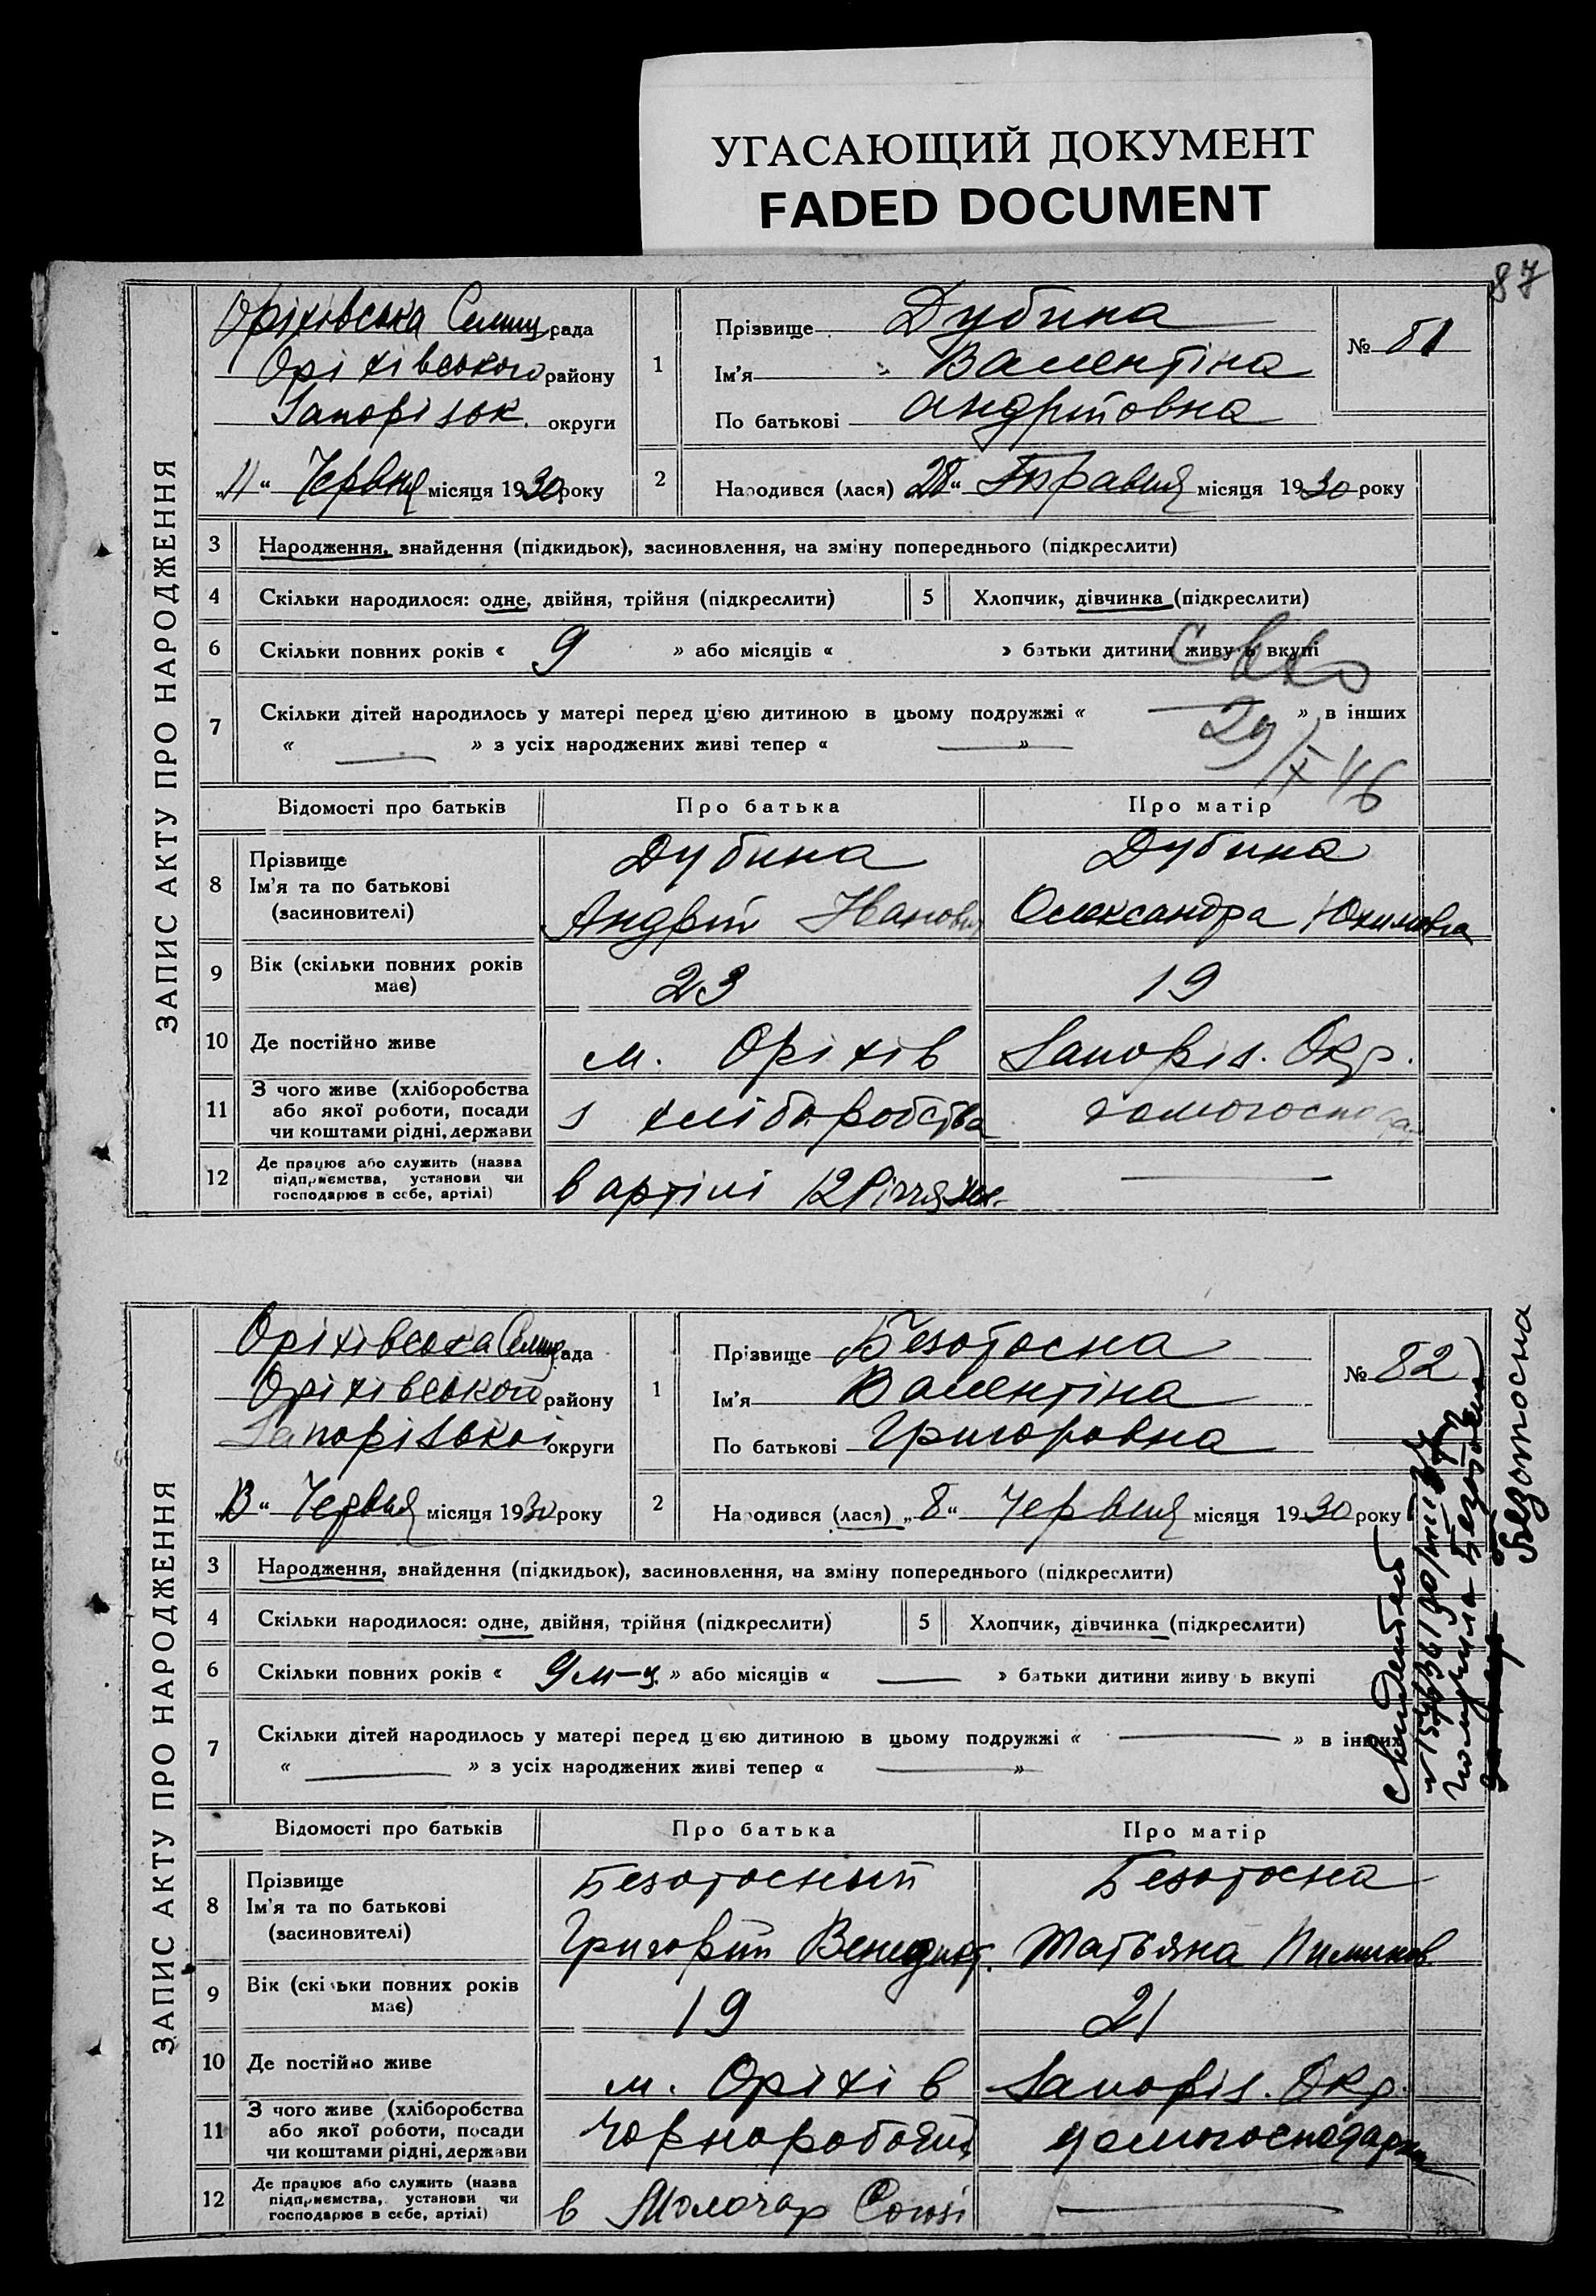 УГАСАЮЩИЙ ДОКУМЕНТ
FADED DOCUMENT
87
ЗАПИС АКТУ ПРО НАРОДЖЕННЯ
Оріхівська Селищ рада
Оріхівського району
Запорізьк. округи
„11“ Червня місяця 1930 року
1
Прізвище Дубина
Ім'я Валентіна
По батькові Андріївна
№ 81
2 Народився (лася) 28“ Травня місяця 1930 року
3 Народження, знайдення (підкидьок), засиновлення, на зміну попереднього (підкреслити)
4 Скільки народилося: одне, двійня, трійня (підкреслити) 5 Хлопчик, дівчинка (підкреслити)
6 Скільки повних років « 9 » або місяців « » батьки дитини живуть вкупі
7 Скільки дітей народилось у матері перед цією дитиною в цьому подружжі « — » в інших
« — » з усіх народжених живі тепер « — »
29/X 46
Відомості про батьків Про батька Про матір
8 Прізвище Дубина Дубина
Ім'я та по батькові
(засиновителі) Андрій Іванович Олександра Юхимовна
9 Вік (скільки повних років має) 23 19
10 Де постійно живе м. Оріхів Запоріз. Окр.
11 З чого живе (хліборобства
або якої роботи, посади
чи коштами рідні, держави з хліборобства домогосподар
12 Де працює або служить (назва
підприємства, установи чи
господарює в себе, артілі) в артілі 12 Річчя
ЗАПИС АКТУ ПРО НАРОДЖЕННЯ
Оріхівська Селищ рада
Оріхівського району
Запорізької округи
„13“ Червня місяця 1930 року
1
Прізвище Безотосна
Ім'я Валентіна
По батькові Григоровна
№ 82
2 Народився (лася) „8“ Червня місяця 1930 року
3 Народження, знайдення (підкидьок), засиновлення, на зміну попереднього (підкреслити)
4 Скільки народилося: одне, двійня, трійня (підкреслити) 5 Хлопчик, дівчинка (підкреслити)
6 Скільки повних років « 9 м-ц. » або місяців « — » батьки дитини живуть вкупі
7 Скільки дітей народилось у матері перед цією дитиною в цьому подружжі « — » в інших
« — » з усіх народжених живі тепер « — »
получила
Безотосна
Відомості про батьків Про батька Про матір
8 Прізвище Безотосный Безотосна
Ім'я та по батькові
(засиновителі) Григорій Венедикт. Татьяна Пилипов.
9 Вік (скільки повних років має) 19 21
10 Де постійно живе м. Оріхів Запоріз. Окр.
11 З чого живе (хліборобства
або якої роботи, посади
чи коштами рідні, держави Чорноробочий домогосподарка
12 Де працює або служить (назва
підприємства, установи чи
господарює в себе, артілі) в Молочар Союзі —